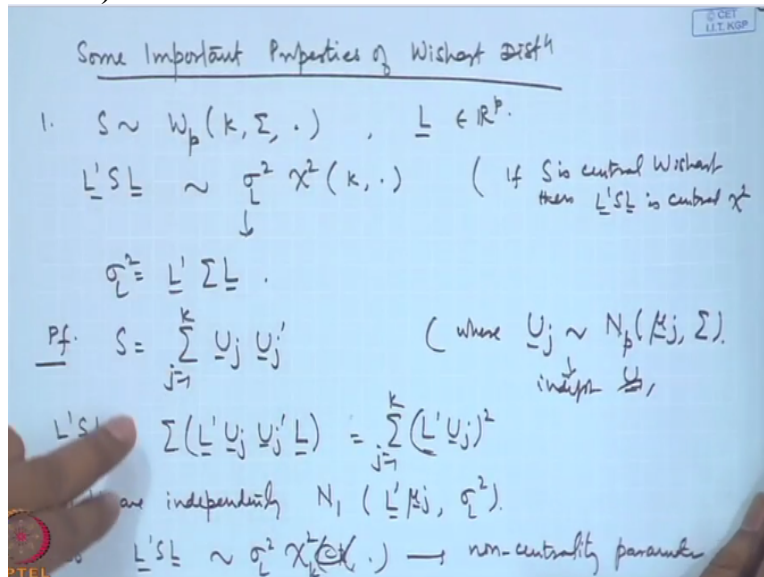 © CET
I.I.T. KGP
Some Important Properties of Wishart Distⁿ
1. S ~ W_p (k, Σ, ·) , L ∈ ℝ^p.
L'SL ~ σ_L² χ²(k, ·) ( if S is central Wishart
then L'SL is central χ²
↓
σ_L² = L' Σ L .
Pf. S = Σ_{j=1}^{k} U_j U_j' ( where U_j ~ N_p(μ_j, Σ).
↓
indept
L'S Σ(L' U_j U_j' L) = Σ_{j=1}^{k} (L' U_j)²
are independently N_1 ( L' μ_j, σ_L²).
L'SL ~ σ_L² χ_k²( ·) → non-centrality parameter
PTEL